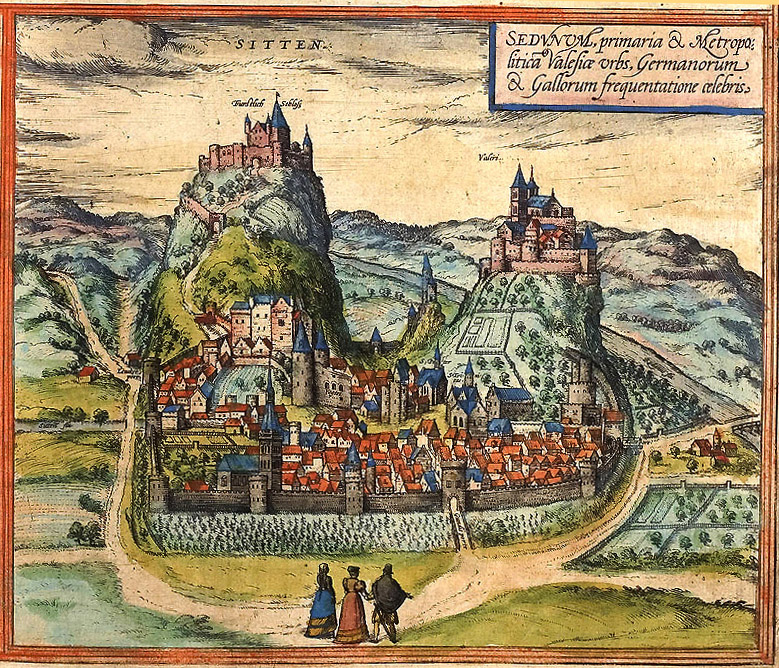 SITTEN.
SEDVNVM, primaria & Metropo:
litica Valesiæ vrbs, Germanorum
& Gallorum frequentatione celebris.
Schloss
Valeri.